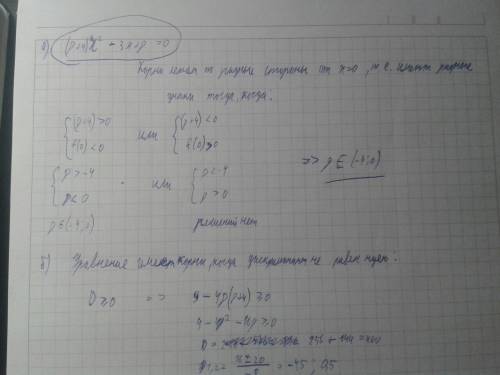 а) (p+4)x² + 3x+p = 0
Корни лежат по разные стороны от x=0, т.е. имеют разные
знаки тогда, когда:
{(p+4)>0 или {(p+4)<0
{f(0)<0 {f(0)>0
=> p∈(-4;0)
{p>-4 или {p<-4
{p<0 {p>0
p∈(-4;0) решений нет
б) Уравнение имеет корни, когда дискриминант не равен нулю:
D≥0 => 9-4p(p+4)≥0
9-4p²-16p≥0
D = 256+144=400
p1,2= 16±20/-8 = -4,5; 0,5